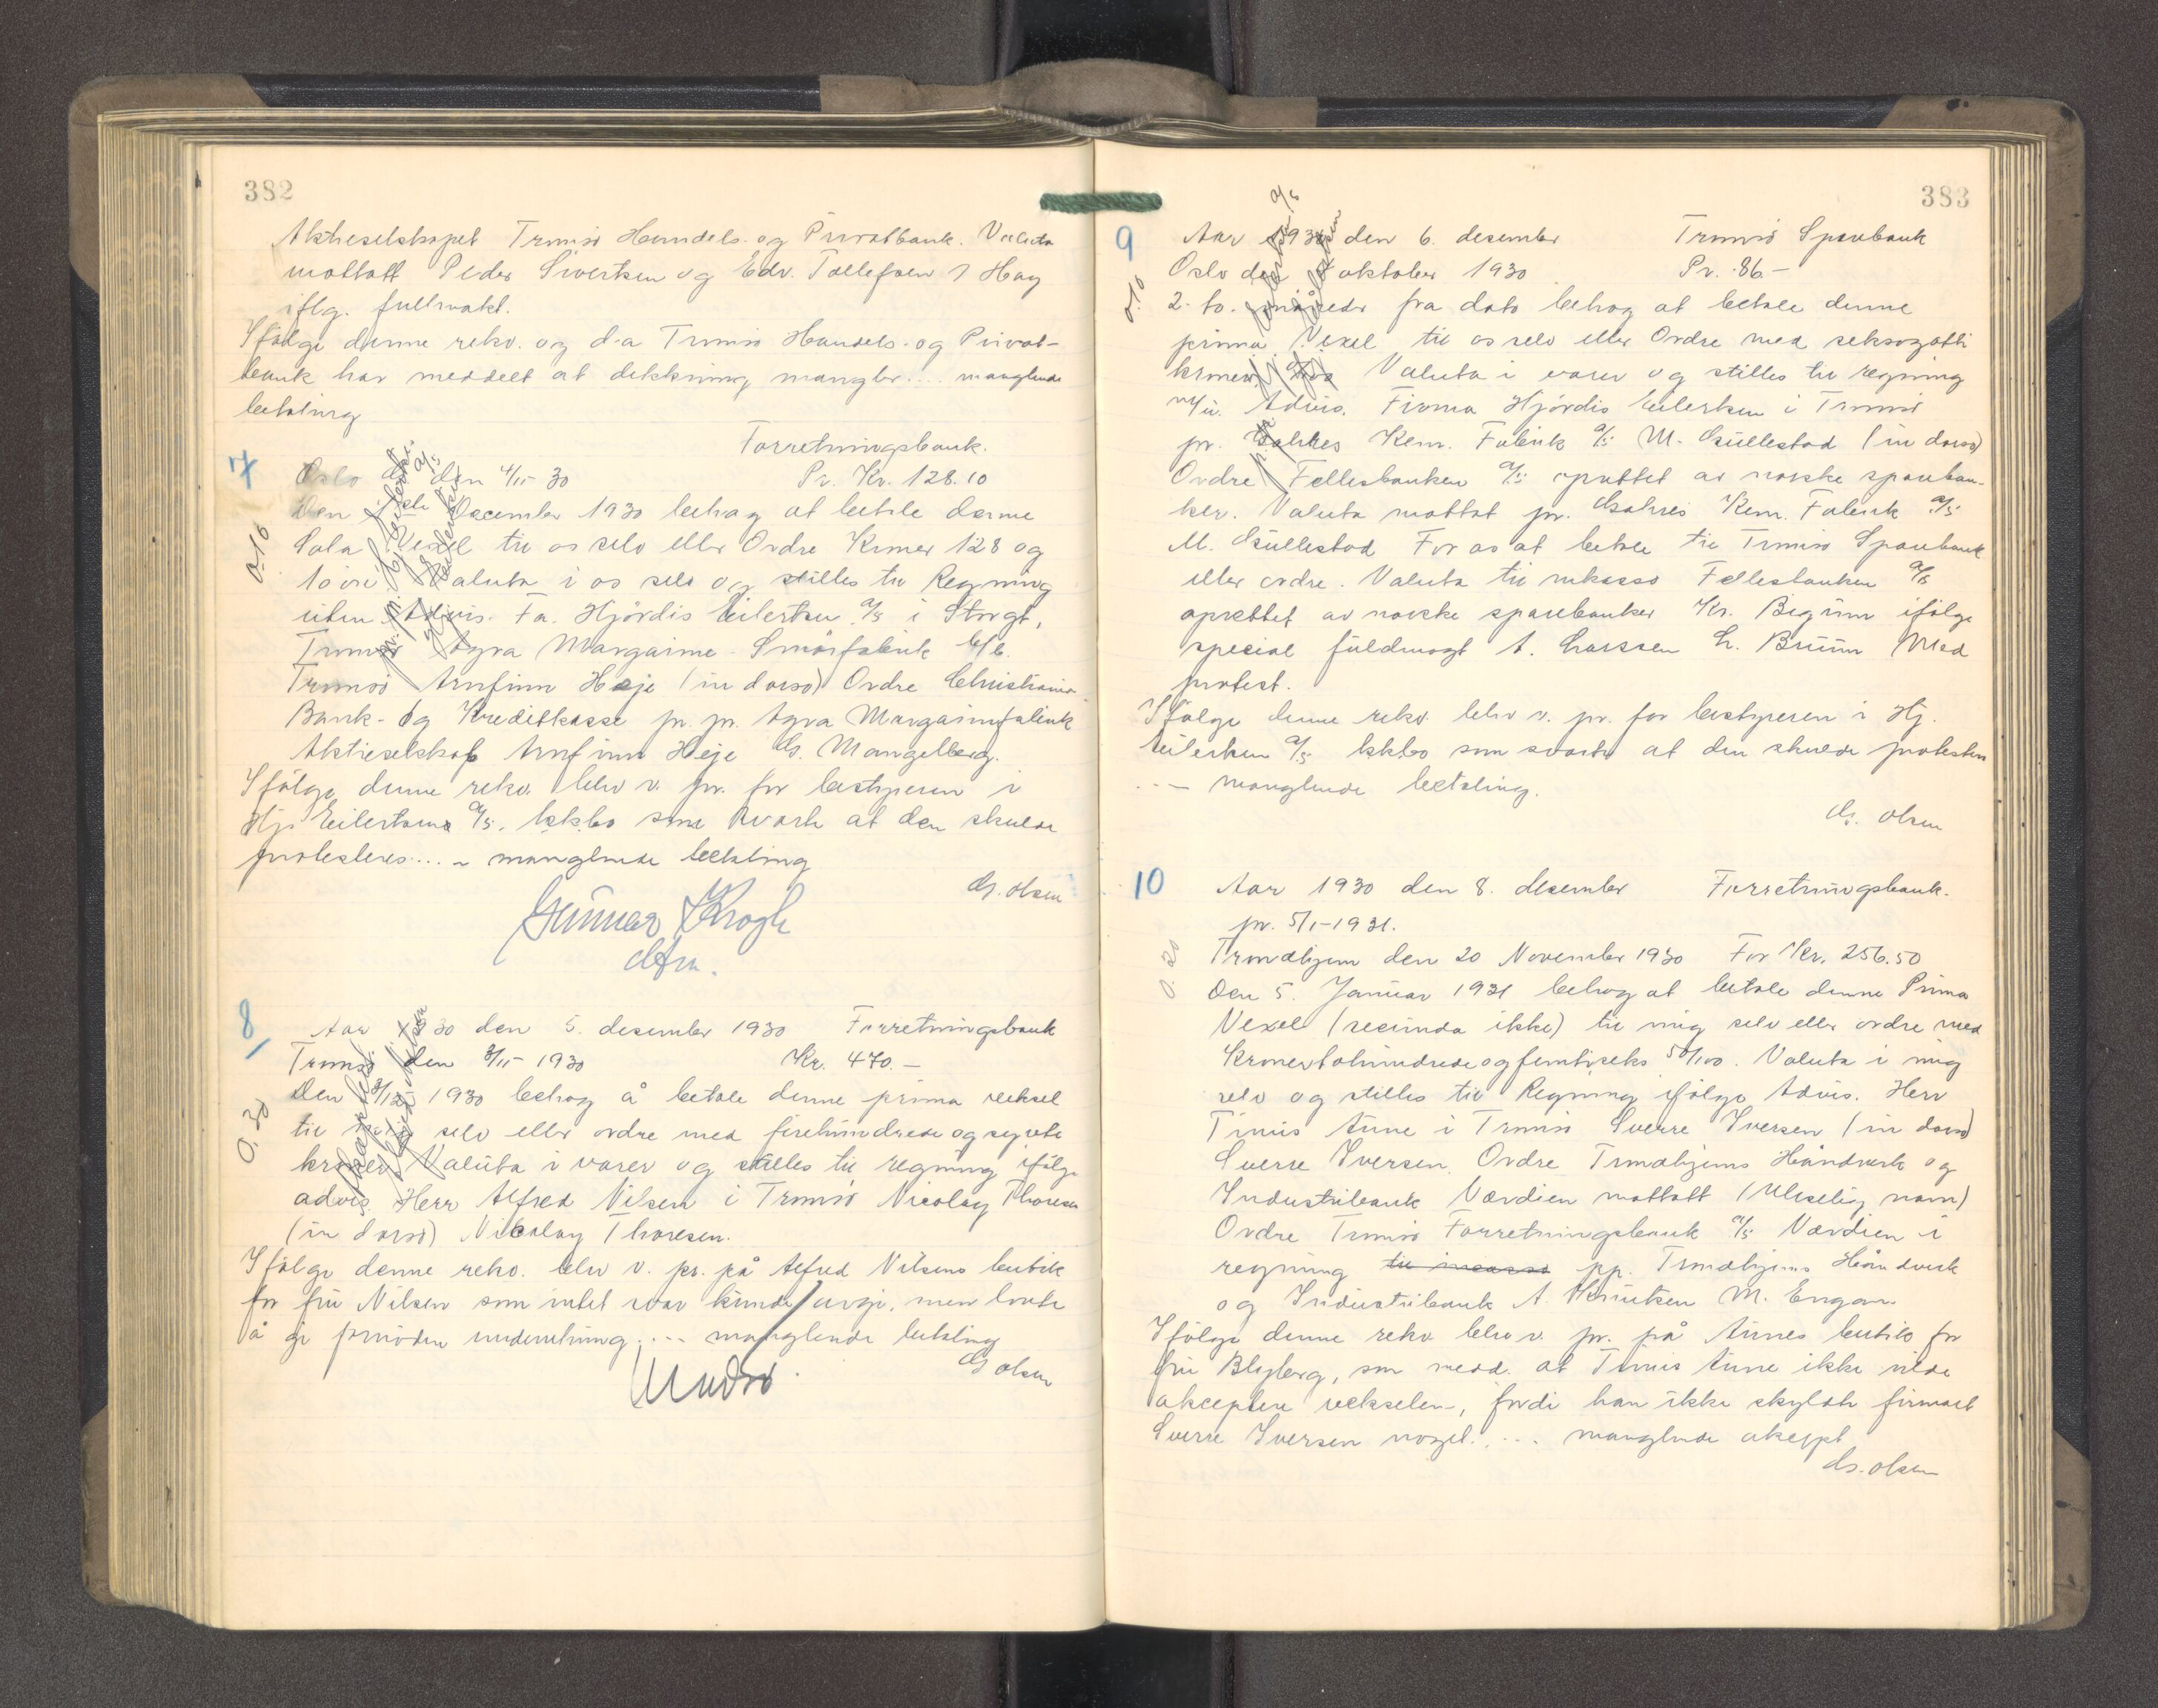 382
Aktieselskapet Tromsö Handels- og Privatbank. Valuta
mottatt Peder Sivertsen og Edv. Tollefsen
iflg. fullmakt.
Ifölge denne rekv. og d.a Tromsö Handels- og Privat-
bank har meddelt at dekkning mangler.... manglende
betaling
Forretningsbank.
7
Oslo den 4/11- 30 Pr. Kr. 128.10
0.10
Den December 1930 behag at betale denne
Sola Vexel til os selv eller Ordre Kroner 128 og
10 öre Valuta i os selv og stilles til Regning
uten Advis. Fa. Hjördis Eilertsen A/S i Storgt,
Tromsö Agra Margarine- Smörfabrik
Tromsö Arnfinn Heje (in dorso) Ordre Christiania
Bank- og Kreditkasse pr. pr. Agra Margarinfabrik
Aktieselskab Arnfinn Heje G. Mangelberg.
Ifölge denne rekv. blev v. pr. for bestyreren i
Hj. Eilertsens A/S. som svarte at den skulde
protesteres.... - manglende betaling
G. Olsen
Gunnar Krogh
8
Aar 1930 den 5. desember 1930 Forretningsbank
Tromsö den 3/11- 1930 Kr. 470.-
0.30
Den 3/12- 1930 behag å betale denne prima veksel
til mig selv eller ordre med firehundrede og sytti
kroner Valuta i varer og stilles til regning ifölge
advis Herr Alfred Nilsen i Tromsö Nicolay Thoresen
(in dorso) Nicolay Thoresen.
Ifölge denne rekv. blev v. pr. på Alfred Nilsens butik
for fru Nilsen som intet svar kunde avgi, men lovte
å gi underretning.... manglende betaling
G Olsen
383
9
Aar 1930 den 6. desember Tromsö Sparebank
Oslo den oktober 1930 Pr. 86.-
0.10
2- to- måneder fra dato behag at betale denne
prima Vexel til os selv eller Ordre med seksogotti
kroner Valuta i varer og stilles til regning
Advis. Firma Hjördis Eilertsen i Tromsö
pr. Kem. Fabrik A/S M. Gullestad (in dorso)
Ordre Fellesbanken A/S oprettet av norske spareban-
ker. Valuta mottat pr. Kem. Fabrik A/S
M. Gullestad For os at betale til Tromsö Sparebank
eller ordre. Valuta til inkasso Fellesbanken A/S
oprettet av norske sparebanker Kr. ifölge
special fuldmagt A. Larssen L. Bruun Med
protest.
Ifölge denne rekv. blev v. pr. for bestyreren i Hj.
Eilertsen A/S som svarte at den skulde protesteres
... - manglende betaling.
G. Olsen
10
Aar 1930 den 8. desember Forretningsbank.
pr. 5/1-1931.
0.20
Trondhjem den 20 November 1930 For Kr. 256.50
Den 5. Januar 1931 behag at betale denne Prima
Vexel (secunda ikke) til mig selv eller ordre med
Kroner tohundrede og femtiseks 50/100. Valuta i mig
selv og stilles til Regning ifölge Advis. Herr
Tinus Aune i Tromsö Sverre Iversen (in dorso)
Sverre Iversen. Ordre Trondhjems Håndverk og
Industribank Værdien mottatt (Uleselig navn)
Ordre Tromsö Forretningsbank A/S Værdien i
regning til incasso pp. Trondhjems Håndverk
og Industribank A. Knutsen M. Engan.
Ifölge denne rekv. blev v. pr. på Aunes butik for
fru Blyberg, som medd. at Tinus Aune ikke vilde
akseptere vekselen, fordi han ikke skyldte firmaet
Sverre Iversen noget.... manglende aksept
G. Olsen